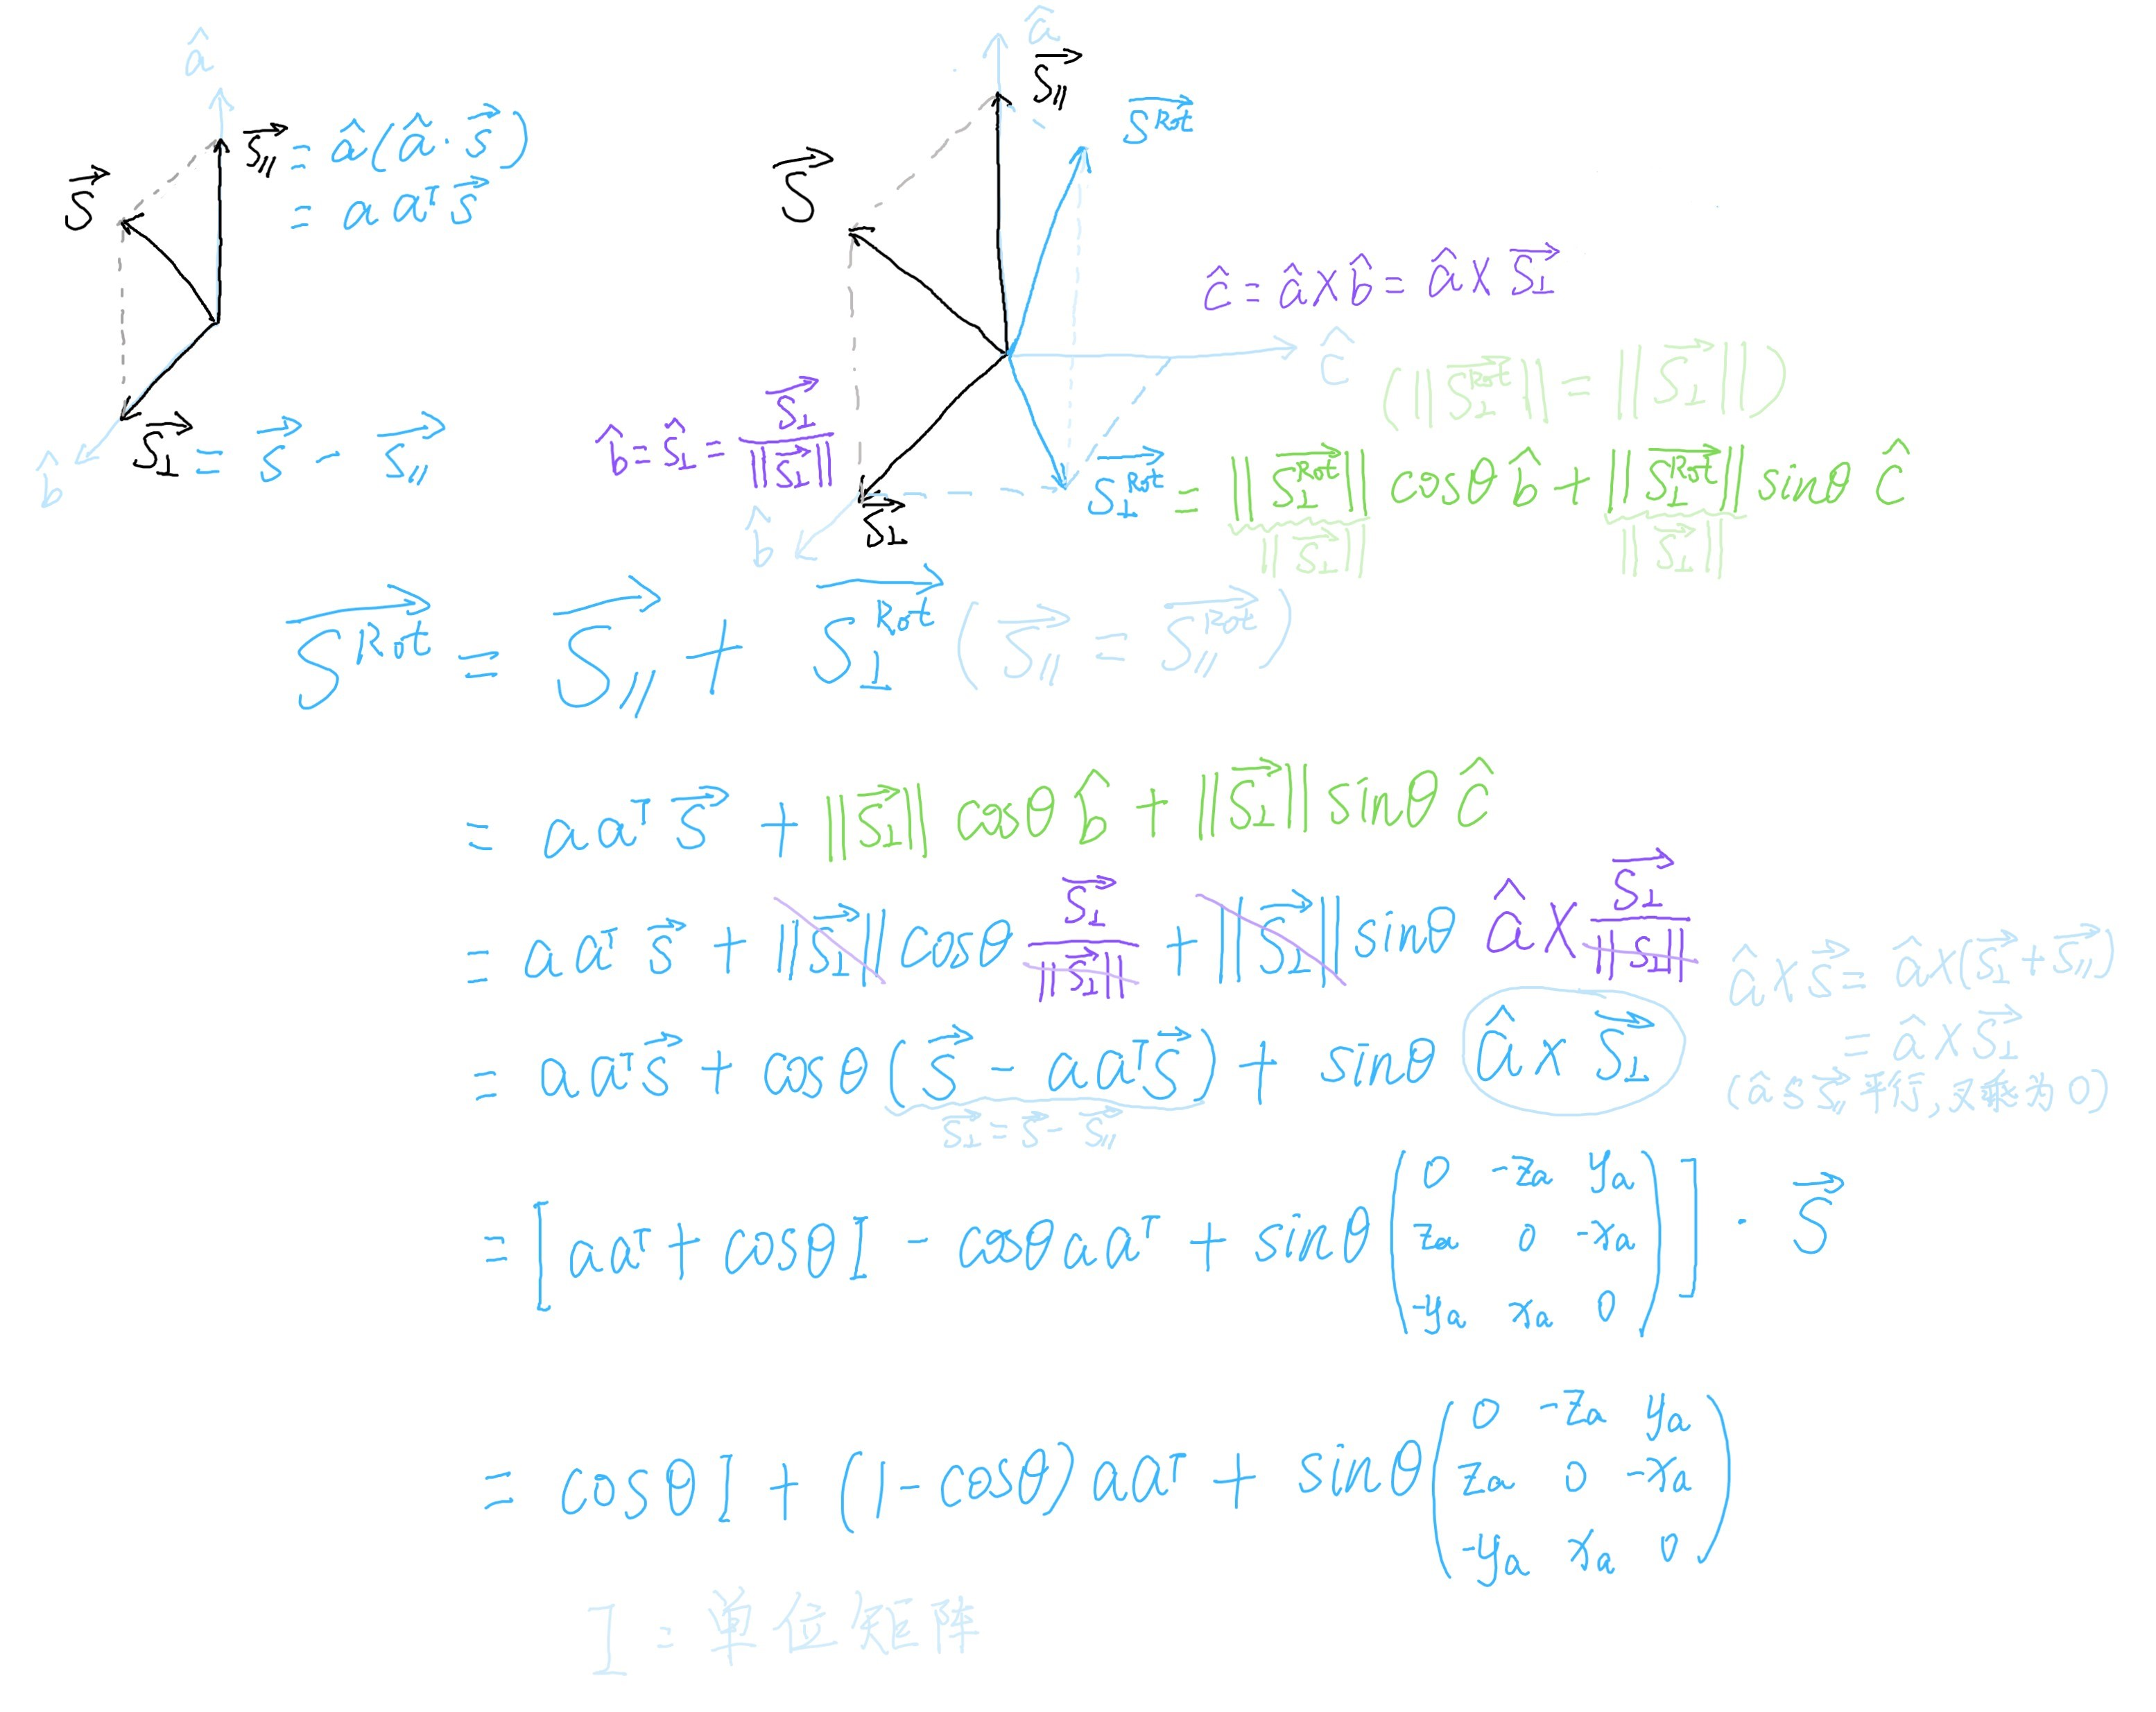 â
S⃗
S⃗∥ = â(â · s⃗)
= a aᵀ s⃗
b̂
S⃗⊥ = s⃗ − s⃗∥
â
S⃗∥
S⃗ᴿᵒᵗ
S⃗
ĉ = â × b̂ = â × S⃗⊥
ĉ
(||S⃗⊥ᴿᵒᵗ|| = ||S⃗⊥||)
b̂ = ŝ⊥ = S⃗⊥ / ||S⃗⊥||
S⃗⊥ᴿᵒᵗ = ||S⃗⊥ᴿᵒᵗ|| cosθ b̂ + ||S⃗⊥ᴿᵒᵗ|| sinθ ĉ
||S⃗⊥|| ||S⃗⊥||
b̂
S⃗⊥
S⃗ᴿᵒᵗ = S⃗∥ + S⃗⊥ᴿᵒᵗ (S⃗∥ = S⃗∥ᴿᵒᵗ)
= aaᵀ s⃗ + ||S⃗⊥|| cosθ b̂ + ||S⃗⊥|| sinθ ĉ
= aaᵀ s⃗ + ||S⃗⊥|| cosθ S⃗⊥ / ||S⃗⊥|| + ||S⃗⊥|| sinθ â × S⃗⊥ / ||S⊥||
â × s⃗ = â × (S⃗⊥ + S⃗∥)
= â × S⃗⊥
(â与S⃗∥平行,叉乘为0)
= aaᵀs⃗ + cosθ(s⃗ − aaᵀs⃗) + sinθ â × S⃗⊥
S⃗⊥ = s⃗ − S⃗∥
= [aaᵀ + cosθI − cosθaaᵀ + sinθ (0 -za ya
za 0 -xa
-ya xa 0)] · S⃗
= cosθI + (1-cosθ)aaᵀ + sinθ (0 -za ya
za 0 -xa
-ya xa 0)
I = 单位矩阵